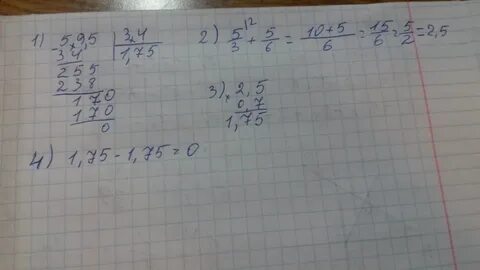 1) 5,9,5 | 3,4
- 3 4 | 1,75
2 5 5
2 3 8
1 7 0
1 7 0
0
2) 5/3 + 5/6 = 10+5/6 = 15/6 = 5/2 = 2,5
3) × 2,5
0,7
1,75
4) 1,75 - 1,75 = 0